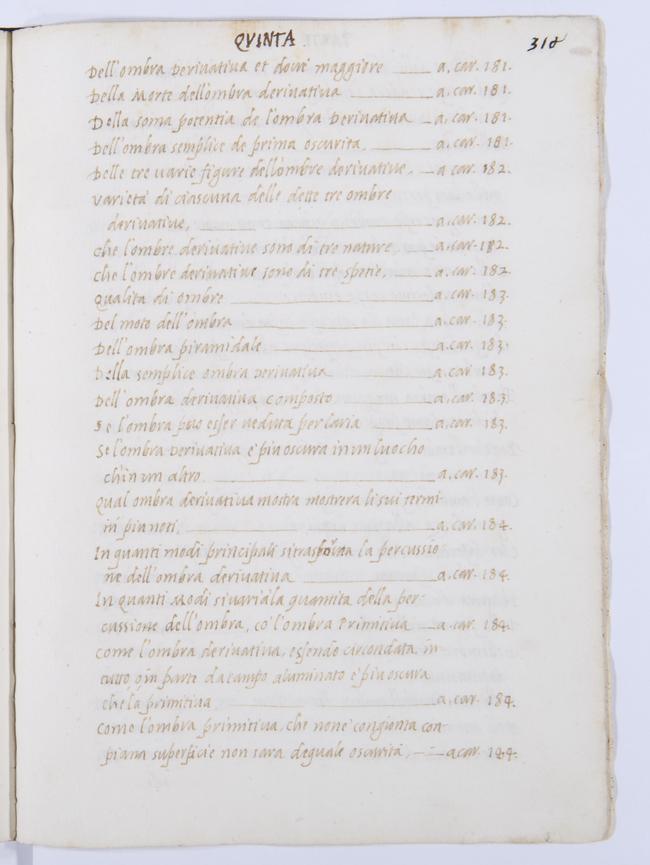 QVINTA
318
Dell'ombra Derivativa et dove maggiore a. car. 181.
Della Morte dell'ombra derivativa a. car. 181.
Della soma potentia de l'ombra Derivativa a. car. 181.
Dell'ombra semplice de prima oscurita. a. car. 181.
Delle tre varie figure dell'ombre derivative. a. car. 182.
varieta di ciascuna delle dette tre ombre
derivative, a. car. 182.
che l'ombre derivative sono di tre nature a. car. 182.
che l'ombre derivative sono di tre spetie, a. car. 182.
Qualita di ombre a. car. 183.
Del moto dell'ombra a. car. 183.
Dell'ombra piramidale a. car. 183.
Della semplice ombra Derivativa a. car. 183.
Dell'ombra derivativa composto a. car. 183.
Se l'ombra puo esser veduta per l'aria a. car. 183.
Se l'ombra Derivativa è piu oscura in un luocho
ch'in un altro. a. car. 183.
Qual ombra derivativa mostra mostrera li sui termi
in piu noti. a. car. 184.
In quanti modi principali si trasforma la percussio
ne dell'ombra derivativa a. car. 184.
In Quanti Modi si varia la quantita della per-
cussione dell'ombra, co' l'ombra Primitiva a. car. 184.
come l'ombra derivativa, essendo circondata in
tutto, o in parte da campo aluminato è piu oscura
che la primitiva a. car. 184.
Como l'ombra primitiva, che none congionta con
piana superficie non sara deguale oscurità, a car. 184.